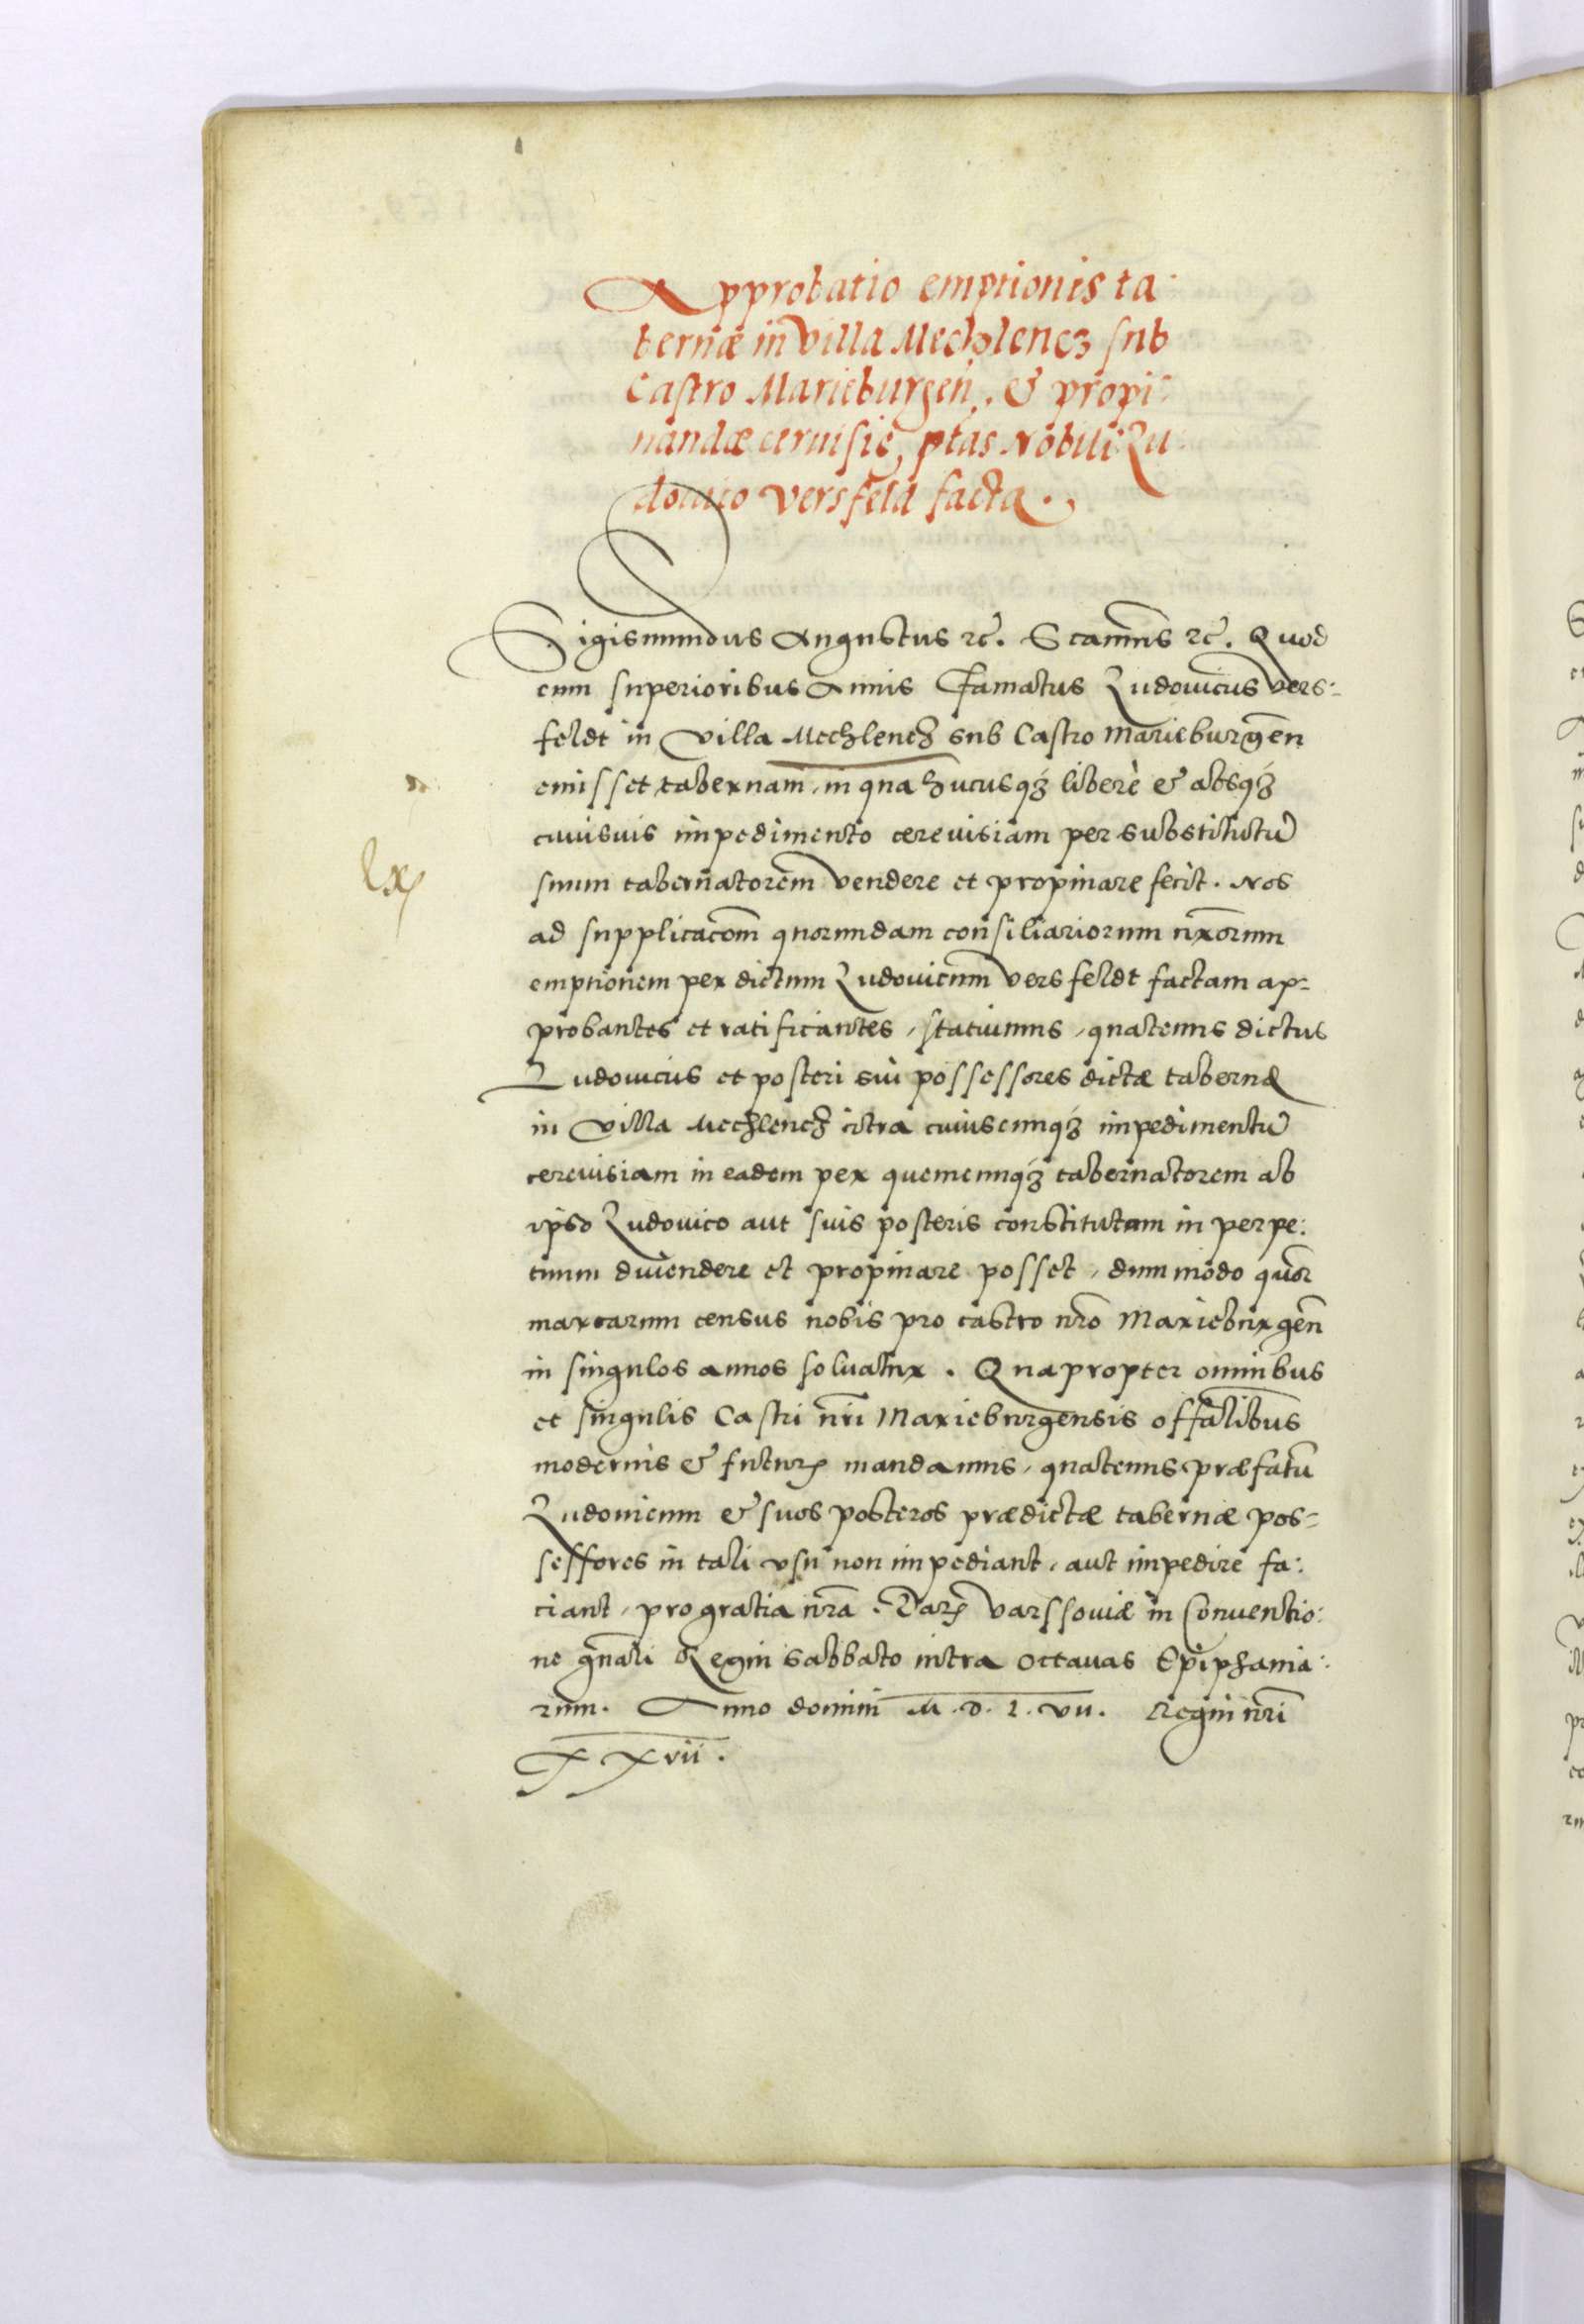 Approbatio emptionis ta
bernæ in villa Mechlencz sub
Castro Marieburgeñ. & propi:
nandæ ceruisie, ptas Nobili Lu
douico Versfeld facta.
Sigismundus Augustus ꝛc̃. S canim̃s ꝛc̃. Quod
cum superioribus Annis Famatus Ludouicus Vers:
feldt in Villa Mechlencz sub Castro Marieburgeñ
emisset tabernam, in qua hucusqȝ liberè & absqȝ
cuiusuis impedimento cereuisiam per substitutũ
suum tabernatorem vendere et propinare fecit. Nos
ad supplicacõm quorundam consiliariorum nr̃orum
emptionem per dictum Ludouicum Versfeldt factam ap=
probantes et ratificantes, statuimus, quatenus dictus
Ludouicus et posteri sui possessores dictæ tabernæ
in Villa Mechlencz citra cuiuscunqȝ impedimentũ
cereuisiam in eadem per quemcunqȝ tabernatorem ab
ipso Ludouico aut suis posteris constitutum in perpe:
tuum diuendere et propinare posset, dummodo quor
marcarum census nobis pro castro nr̃o Marieburgeñ
in singulos annos soluatur. Quapropter omnibus
et singulis Castri nr̃i Marieburgensis offãlibus
modernis & futurꝭ mandamus, quatenus præfatũ
Ludouicum & suos posteros prædictæ tabernæ pos=
sessores in tali vsu non impediant, aut impedire fa:
ciant, pro gratia nr̃a. Datꝭ Varssouiæ in Conuentio:
ne gñali Regni sabbato intra octauas Epiphania:
rum. Anno domini M.D.L.vii. Regni nr̃i
XXvii.
lxꝭ